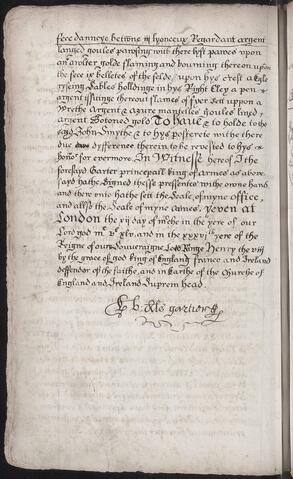 fece daunce betwne iij lyonceux Regardant argent
langed goules pawsing with there lyft pawes upon
an awlter golde flaming and bourning thereon upon
the fece ix belletes of the felde upon hys crest a Egle
rysing Sables hollding in hys Right Cley a pen
argent issuinge thereout flames of fyer sett uppon a
wrethe Argent & azure mantelles goules lyned
argent botoned gold To have & to holde to the
said John Smythe & to hys posterete withe there
due difference therein to be revested to hys
hono^r for evermore. In Witnesse hereof I the
foresayd Garter principall king of armes as above
sayd hathe signed thesse pressentes withe owne hand
and there unto hathe sett the Seale of myne office,
and allso the Seale of myne armes. Yeven at
London the xij day of the in the yere of our
Lord god m^l v^c xlv, and in the xxxvi^th yere of the
Reigne of oure Souveraigne Lord Kinge Henry the viij
by the grace of god king of England france and Ireland
deffendor of the faithe, and in Earthe of the Churche of
England and Ireland Suprem head.
garter